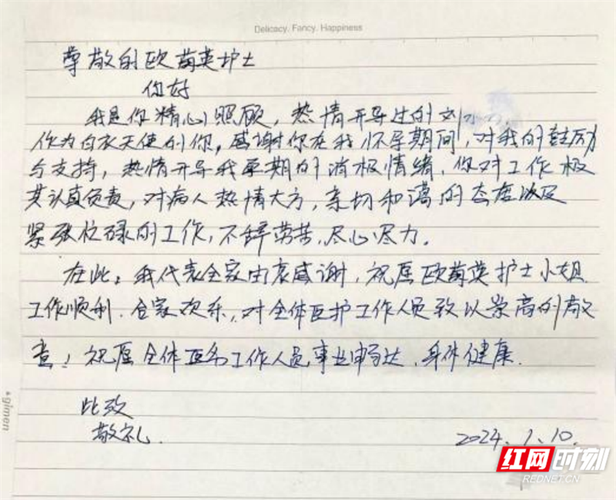 Delicacy, Fancy, Happiness
尊敬的欧菊英护士
你好
我是你精心照顾，热情开导过的刘
作为白衣天使的你，感谢你在我怀孕期间，对我的鼓励
与支持，热情开导我孕期的消极情绪，你对工作极
其认真负责，对病人热情大方，亲切和蔼的态度以及
紧张忙碌的工作，不辞劳苦，尽心尽力。
在此：我代表全家由衷感谢，祝愿欧菊英护士小姐
工作顺利．合家欢乐，对全体医护工作人员致以崇高的敬
意！祝愿全体医务工作人员事业畅达，身体健康．
此致
敬礼．
2024.1.10.
glmen
红网时刻
REDNET.CN